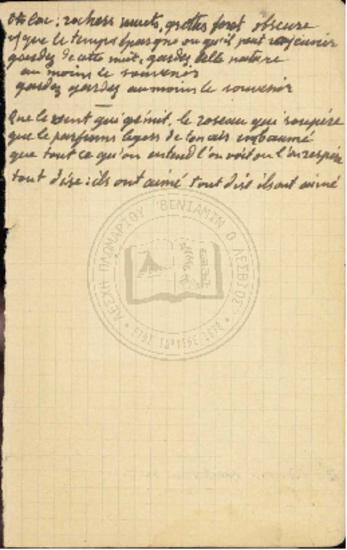 Oh lac, rochers muets, grottes foret obscure
que le temps épargne ou qu'il peut rajeunir
gardez de cette nuit, gardez belle nature
au moins le souvenir
gardez gardez au moins le souvenir
Que le vent qui gémit, le roseau qui soupire
que le parfums legers de ton air embaumé
que tout ce qu'on entend l'on voit ou l'on respire
tout dise: ils ont aimé tout dise ils ont aimé
ΛΕΣΧΗ ΠΛΩΜΑΡΙΟΥ "ΒΕΝΙΑΜΙΝ Ο ΛΕΣΒΙΟΣ"